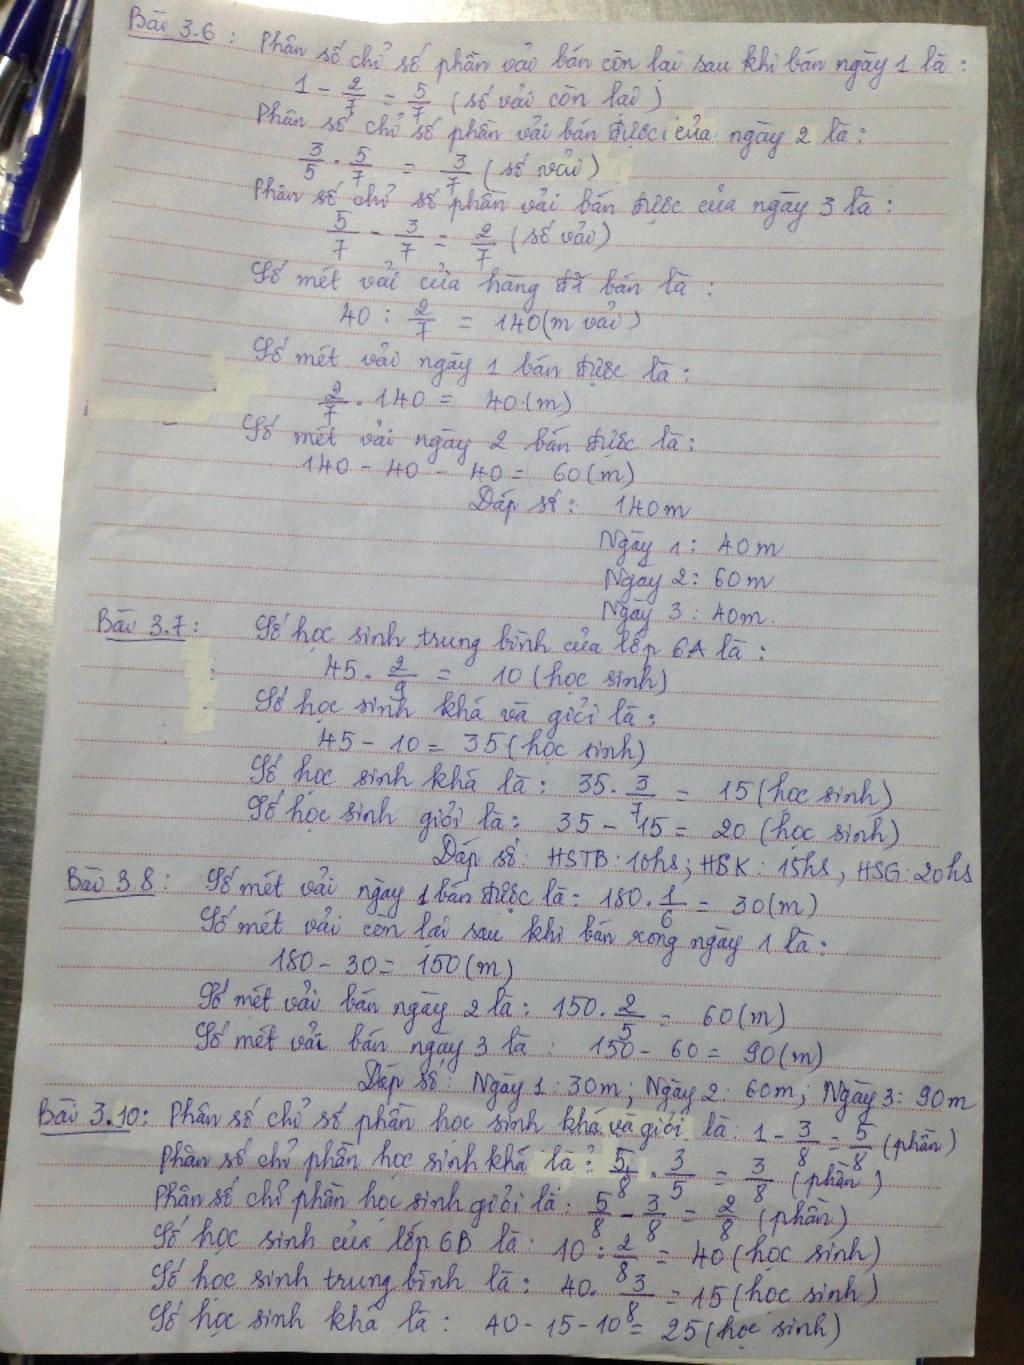 Bài 3.6 : Phân số chỉ số phần vải bán còn lại sau khi bán ngày 1 là :
1 - 2/7 = 5/7 (số vải còn lại)
Phân số chỉ số phần vải bán được của ngày 2 là :
3/5 . 5/7 = 3/7 (số vải)
Phân số chỉ số phần vải bán được của ngày 3 là :
5/7 - 3/7 = 2/7 (số vải)
Số mét vải cửa hàng đã bán là :
40 : 2/7 = 140 (m vải)
Số mét vải ngày 1 bán được là :
2/7 . 140 = 40 (m)
Số mét vải ngày 2 bán được là :
140 - 40 - 40 = 60 (m)
Đáp số : 140m
Ngày 1 : 40m
Ngày 2 : 60m
Ngày 3 : 40m.
Bài 3.7 : Số học sinh trung bình của lớp 6A là :
45 . 2/9 = 10 (học sinh)
Số học sinh khá và giỏi là :
45 - 10 = 35 (học sinh)
Số học sinh khá là : 35 . 3/7 = 15 (học sinh)
Số học sinh giỏi là : 35 - 15 = 20 (học sinh)
Đáp số : HSTB : 10hs ; HSK : 15hs , HSG : 20hs
Bài 3.8 : Số mét vải ngày 1 bán được là : 180 . 1/6 = 30 (m)
Số mét vải còn lại sau khi bán xong ngày 1 là :
180 - 30 = 150 (m)
Số mét vải bán ngày 2 là : 150 . 2/5 = 60 (m)
Số mét vải bán ngày 3 là : 150 - 60 = 90 (m)
Đáp số : Ngày 1 : 30m ; Ngày 2 : 60m ; Ngày 3 : 90m
Bài 3.10 : Phân số chỉ số phần học sinh khá và giỏi là : 1 - 3/8 = 5/8 (phần)
Phân số chỉ phần học sinh khá là : 5/8 . 3/5 = 3/8 (phần)
Phân số chỉ phần học sinh giỏi là : 5/8 - 3/8 = 2/8 (phần)
Số học sinh của lớp 6B là : 10 : 2/8 = 40 (học sinh)
Số học sinh trung bình là : 40 . 3/8 = 15 (học sinh)
Số học sinh khá là : 40 - 15 - 10 = 25 (học sinh)